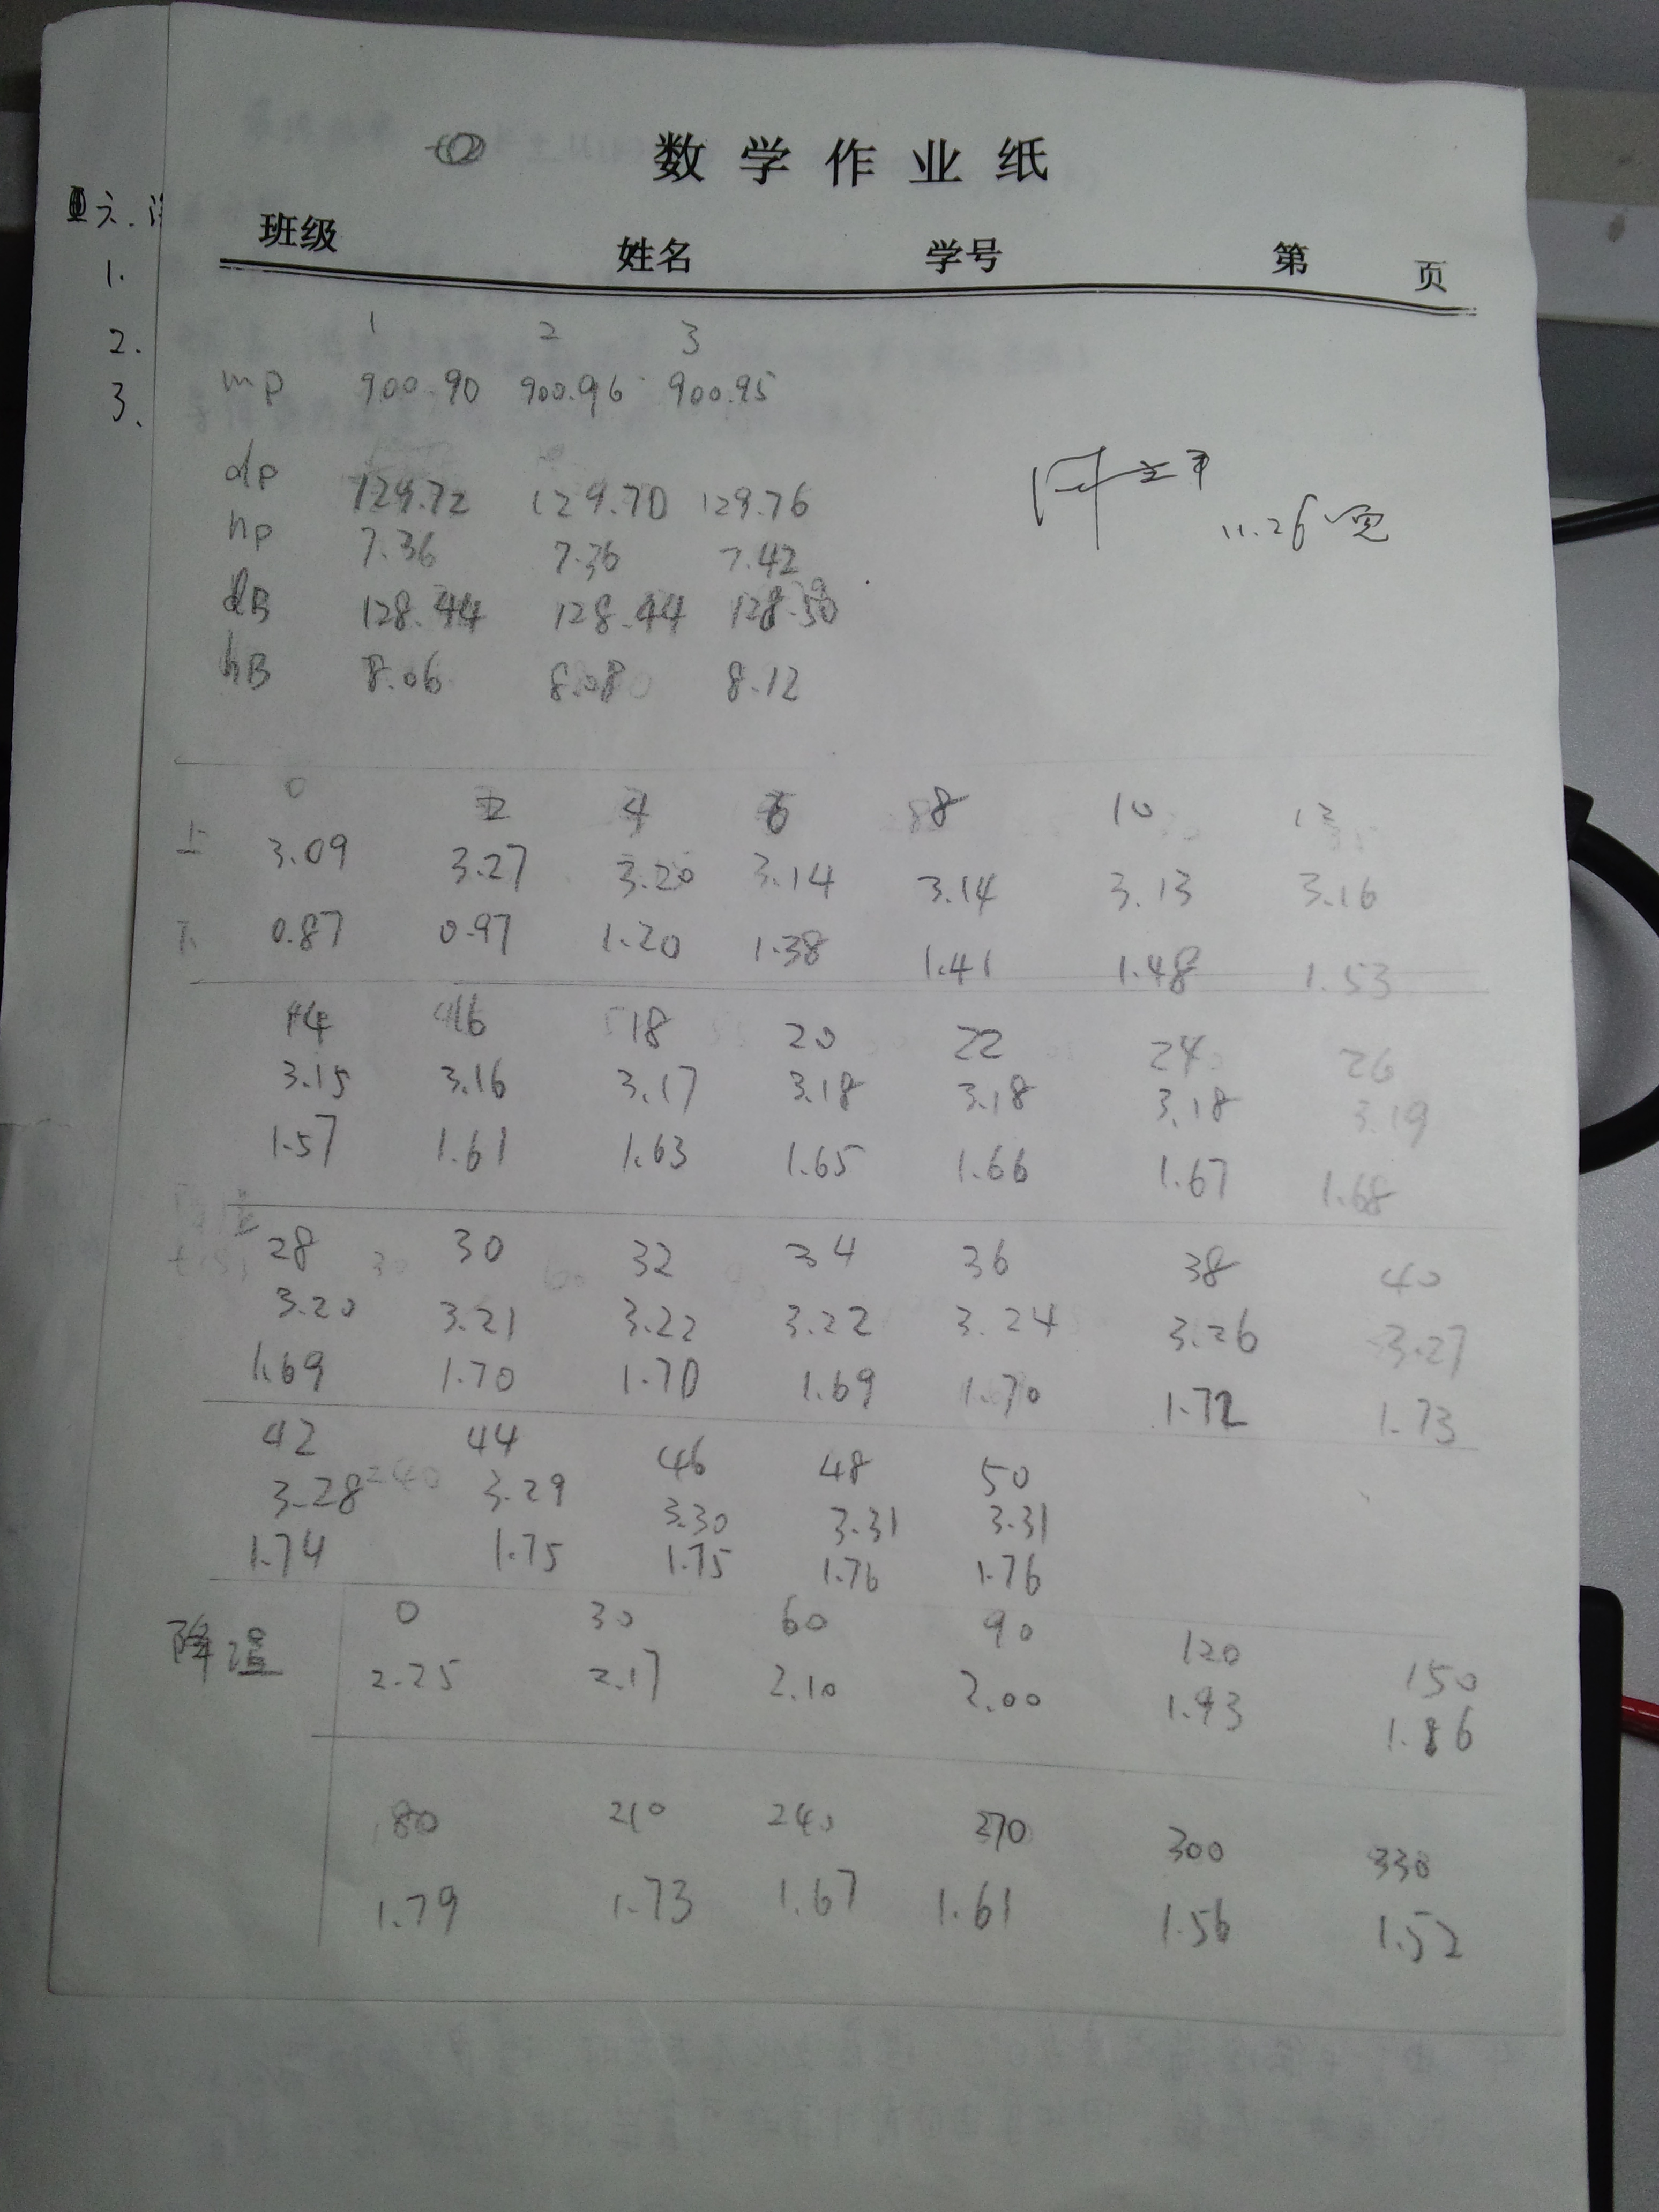 数学作业纸
班级 姓名 学号 第 页
六.
1.
2.
3.
1 2 3
mp 900.90 900.96 900.95
dp 129.72 129.70 129.76
hp 7.36 7.36 7.42
dB 128.44 128.44 128.50
hB 8.06 8.08 8.12
11.26
0 2 4 6 8 10 12
上 3.09 3.27 3.20 3.14 3.14 3.13 3.16
下 0.87 0.97 1.20 1.38 1.41 1.48 1.53
14 16 18 20 22 24 26
3.15 3.16 3.17 3.18 3.18 3.18 3.19
1.57 1.61 1.63 1.65 1.66 1.67 1.68
28 30 32 34 36 38 40
3.20 3.21 3.22 3.22 3.24 3.26 3.27
1.69 1.70 1.70 1.69 1.70 1.72 1.73
42 44 46 48 50
3.28 3.29 3.30 3.31 3.31
1.74 1.75 1.75 1.76 1.76
降温 0 30 60 90 120 150
2.25 2.17 2.10 2.00 1.93 1.86
180 210 240 270 300 330
1.79 1.73 1.67 1.61 1.56 1.52